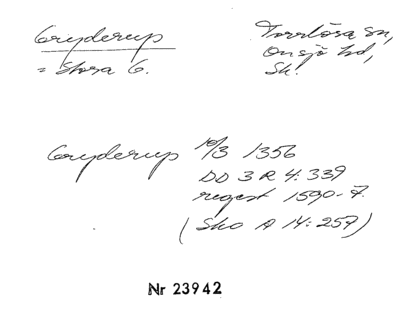 Gryderup
= Stora G.
Torrlösa sn,
Onsjö hd,
Sk.
Gryderup 10/3 1356
DD 3 R 4:339
regest 1590-t.
(Sko A 14:257)
Nr 23942